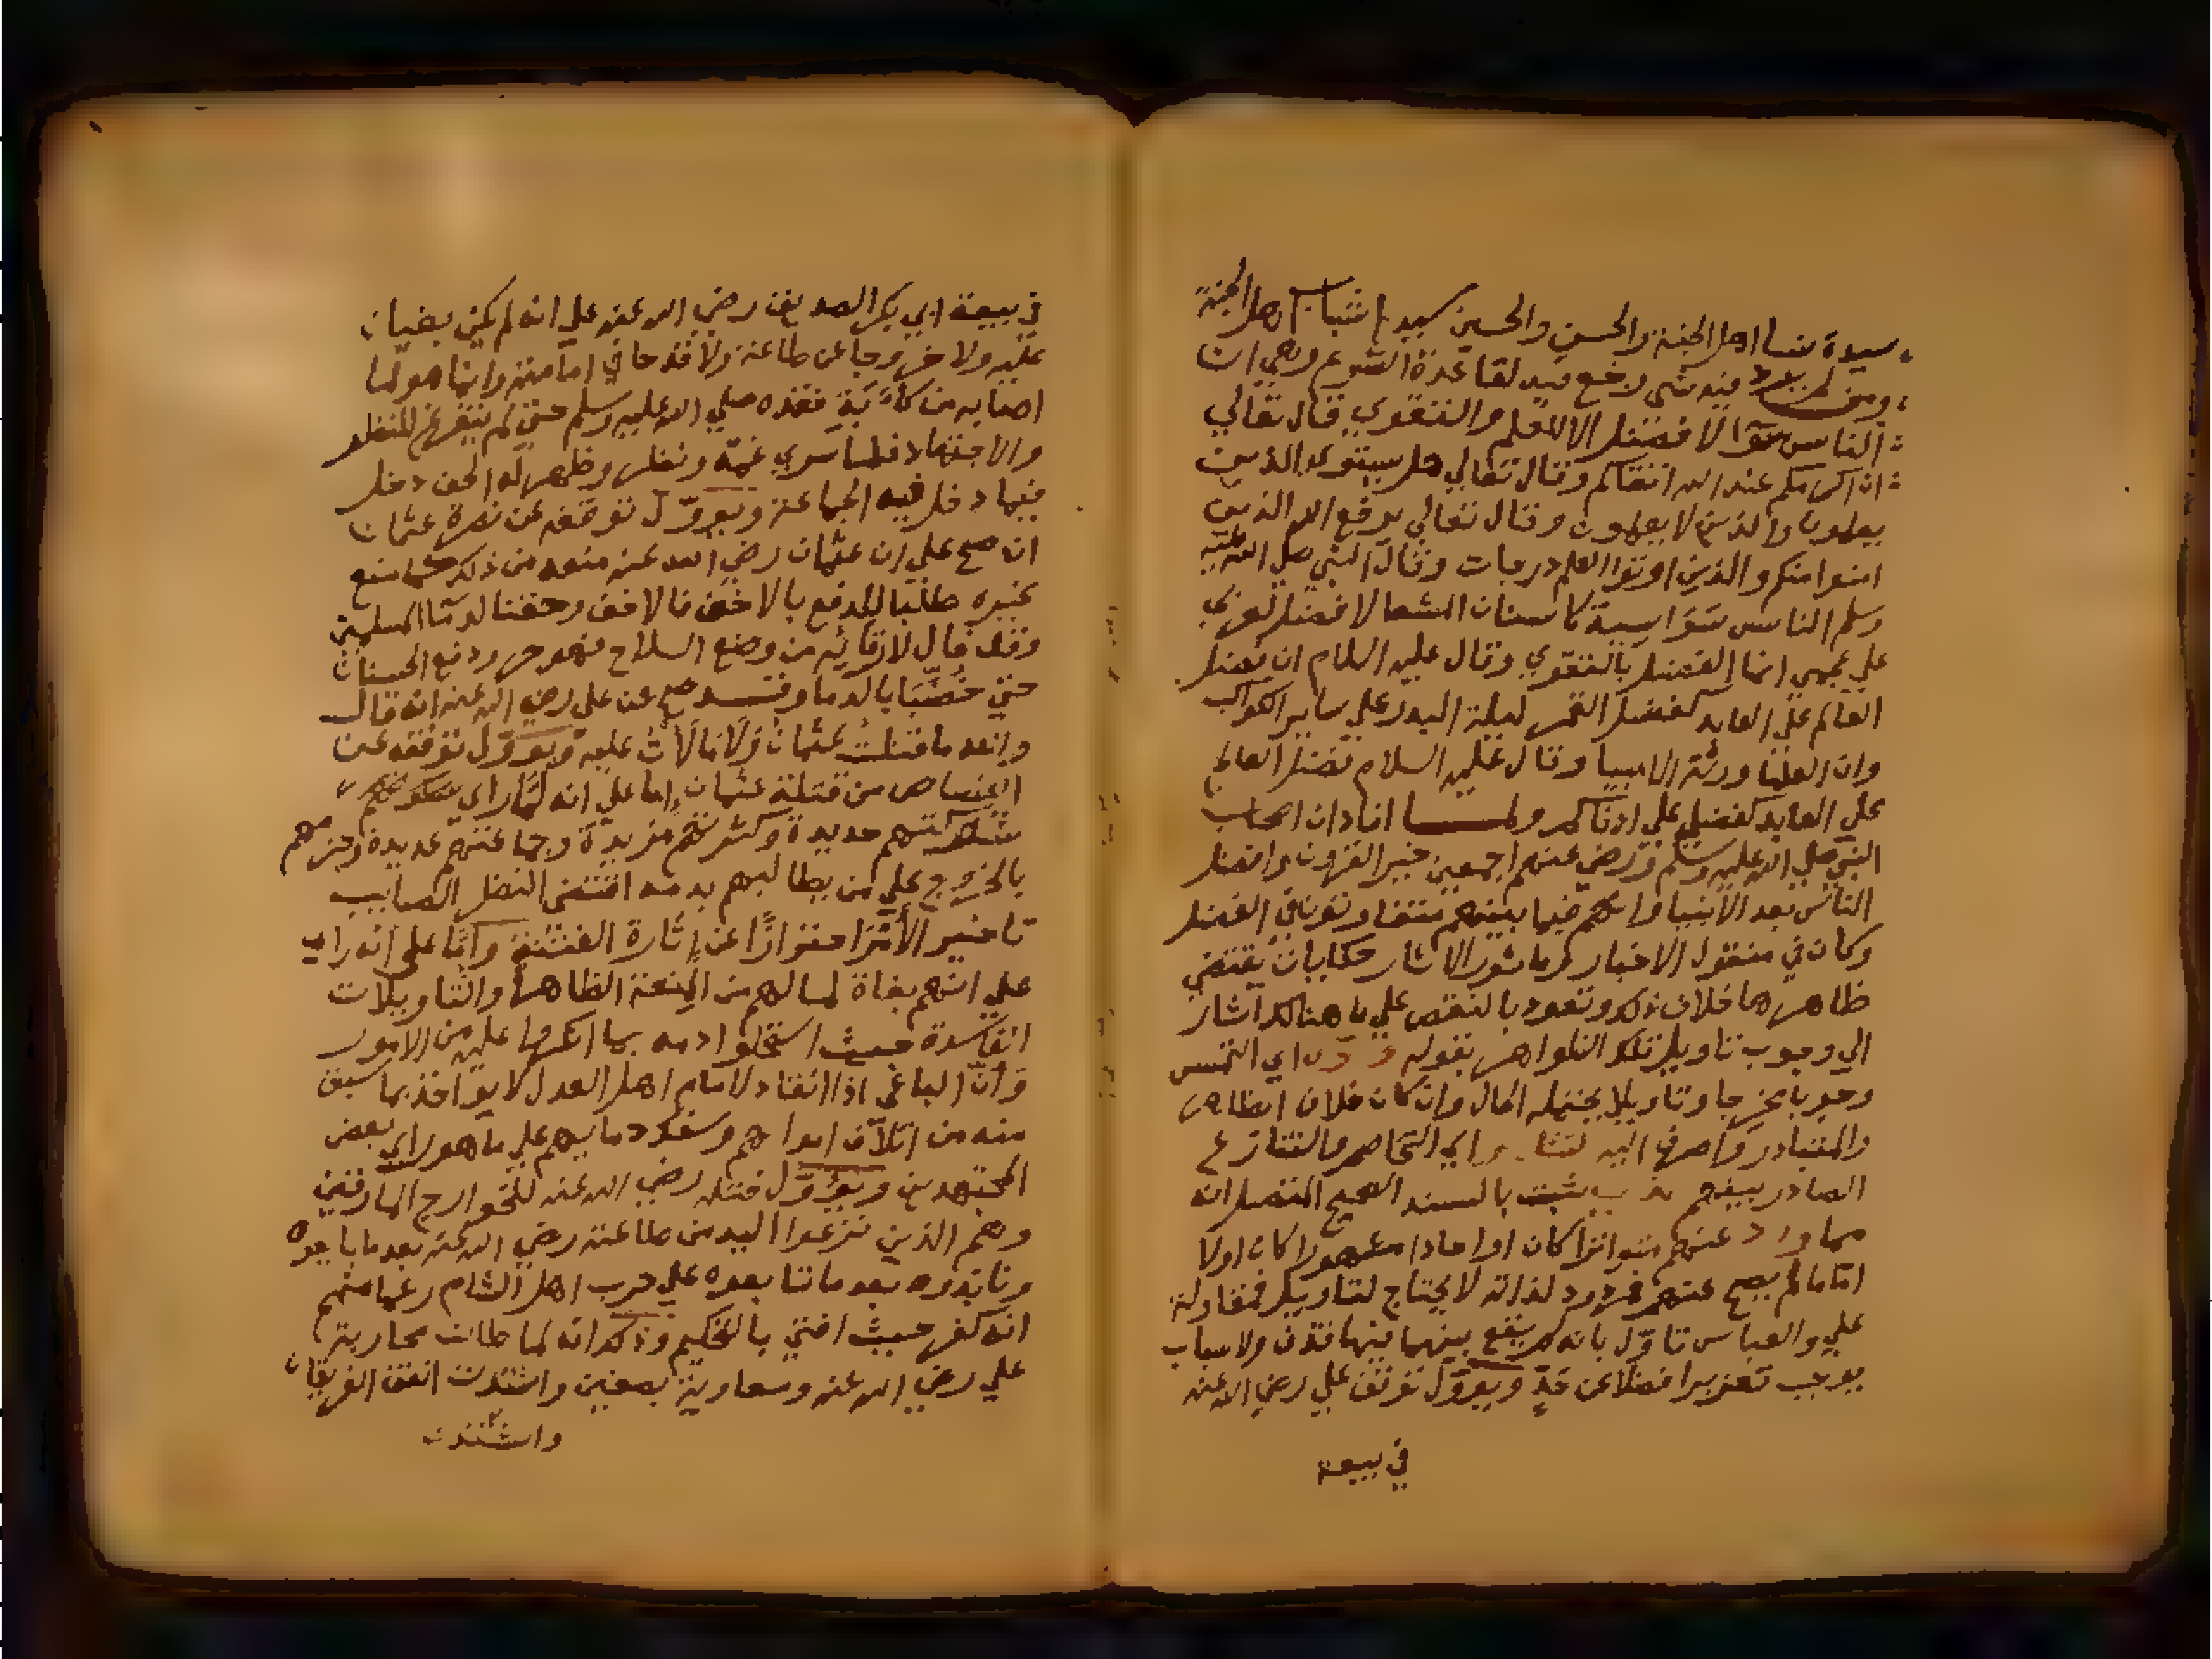 سيدة نسا اهل الجنة والحسن والحسين سيدا شباب اهل الجنة
ومن لم يرد فيه شي رجع فيه لقاعدة الشرع وهي ان
الناس سوآ لا فضل الا بالعلم والتقوي قال تعالي
ان اكرمكم عند الله اتقاكم وقال تعالي هل يستوي الذين
يعلمون والذين لا يعلمون وقال تعالي يرفع الله الذين
امنوا منكم والذين اوتوا العلم درجات وقال النبي صلي الله عليه
وسلم الناس سواسية كاسنان المشط لا فضل لعربي
علي عجمي انما الفضل بالتقوي وقال عليه السلام ان فضل
العالم علي العابد كفضل القمر ليلة البدر علي ساير الكواكب
وان العلما ورثة الانبيا وقال عليه السلام فضل العالم
علي العابد كفضلي علي ادناكم ولما افاد ان اصحاب
النبي صلي الله عليه وسلم ورضي عنهم اجمعين خير القرون وافضل
الناس بعد الانبيا وانهم فيما بينهم متفاوتون في الفضل
وكان في منقول الاخبار وماثور الاثار حكايات يقتضي
ظاهرها خلاف ذلك وتعود بالنقص علي ما هنالك اشار
الي وجوب تاويل تلك الظواهر بقوله اي التمس
وجوبا مخرجا وتاويلا يحتمله الحال وان كان خلاف الظاهر
والمتبادر واصرف اليه اي التخاصم والتنازع
الصادر بينهم يثبت بالسند الصحيح المتصل انه
مما ورد عنهم متواترا كان او احادا مشهورا كان اولا
اما ما لم يصح عنهم فمردود لذاته لا يحتاج لتاويل فمقاولة
علي والعباس تاول بانه لم يقع بينهما فيها قذف ولا سباب
يوجب تعزيرا فضلا عن حد ويوول توقف علي رضي الله عنه
في بيعة
في بيعة ابي بكر الصديق رضي الله عنه علي انه لم يكن بغيا
عليه ولا خروجا عن طاعته ولا قدحا في امامته وانما هو لما
اصابه من كآبة فقده صلي الله عليه وسلم حتي لم يتفرغ للنظر
والاجتهاد فلما سري غمه ونظر وظهر له الحق دخل
فيما دخل فيه الجماعة ويوول توقفه عن نصرة عثمان
ان صح علي ان عثمان رضي الله عنه منعه من ذلك كما منع
غيره طلبا للدفع بالاخف فالاخف وحقنا لدما المسلمين
وقد قال لارقايه من وضع السلاح فهو حر ودفع الحسنان
حتي خضبا بالدما وقد صح عن علي رضي الله عنه انه قال
والله ما قتلت عثمان ولا مالات عليه ويوول توقفه عن
القصاص من قتلة عثمان اما علي انه لما راي
شوكتهم حديدة وكثرتهم مزيدة وجماعتهم عديدة وعزمهم
بالخروج علي من يطالبهم بدمه اقتضي النظر الصايب
تاخير الامر احترازا عن اثارة الفتنة واما علي انه راي
علي انهم بغاة لما لهم من المنعة الظاهرة والتاويلات
الفاسدة حيث استحلوا دمه بما انكروا عليه من الامور
وان الباغي اذا انقاد لامام اهل العدل لا يواخذ بما سبق
منه من اتلاف اموالهم وسفك دمايهم علي ما هو راي بعض
المجتهدين ويوول قتله رضي الله عنه للخوارج المارقين
وهم الذين نزعوا اليد من طاعته رضي الله عنه بعد ما بايعوه
ونابذوه بعد ما تابعوه علي حرب اهل الشام زعما منهم
انه كفر حيث افتي بالتحكيم وذلك انه لما طالت محاربة
علي رضي الله عنه ومعاوية بصفين واشتدت اتفق الفريقان
واشتدت